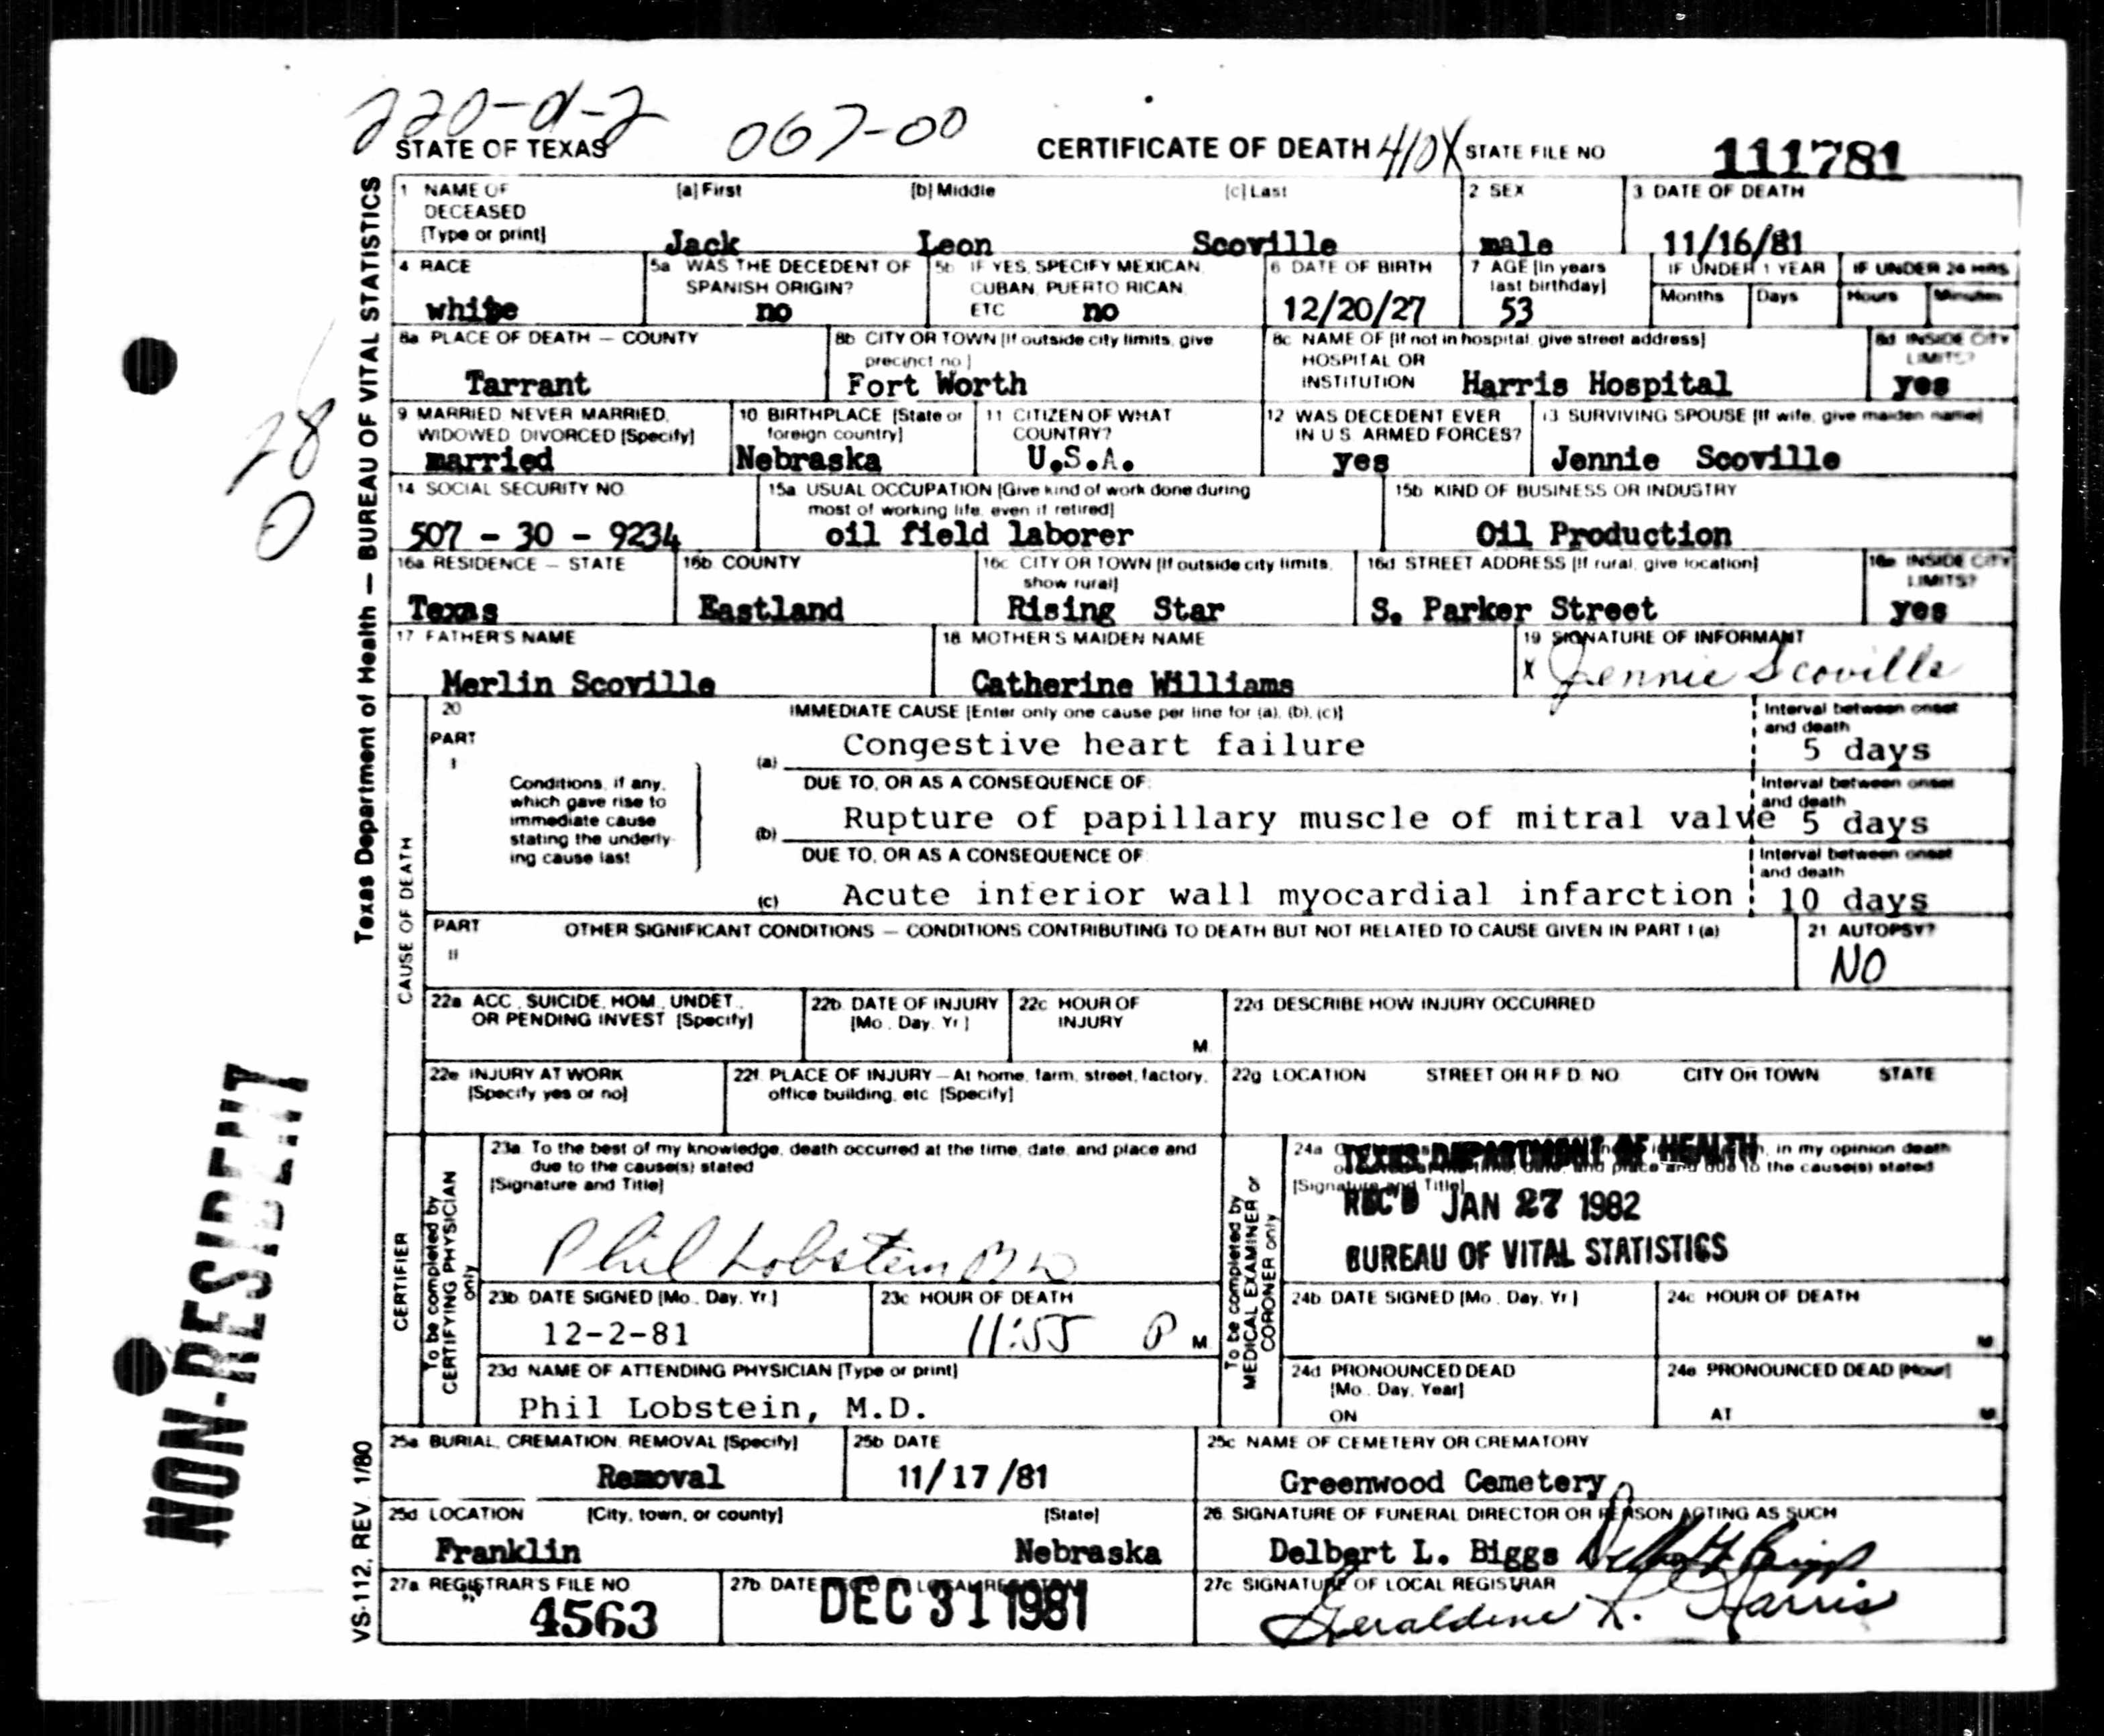 220-d-2 067-00
STATE OF TEXAS CERTIFICATE OF DEATH 410X STATE FILE NO 111781
Texas Department of Health — BUREAU OF VITAL STATISTICS
28
0
1 NAME OF DECEASED [Type or print] [a] First [b] Middle [c] Last 2 SEX 3 DATE OF DEATH
Jack Leon Scoville male 11/16/81
4 RACE 5a WAS THE DECEDENT OF SPANISH ORIGIN? 5b IF YES, SPECIFY MEXICAN, CUBAN, PUERTO RICAN, ETC 6 DATE OF BIRTH 7 AGE [In years last birthday] IF UNDER 1 YEAR IF UNDER 24 HRS
Months Days Hours Minutes
white no no 12/20/27 53
8a PLACE OF DEATH — COUNTY 8b CITY OR TOWN [If outside city limits, give precinct no.] 8c NAME OF [If not in hospital, give street address] HOSPITAL OR INSTITUTION 8d INSIDE CITY LIMITS?
Tarrant Fort Worth Harris Hospital yes
9 MARRIED, NEVER MARRIED, WIDOWED, DIVORCED [Specify] 10 BIRTHPLACE [State or foreign country] 11 CITIZEN OF WHAT COUNTRY? 12 WAS DECEDENT EVER IN U.S. ARMED FORCES? 13 SURVIVING SPOUSE [If wife, give maiden name]
married Nebraska U.S.A. yes Jennie Scoville
14 SOCIAL SECURITY NO. 15a USUAL OCCUPATION [Give kind of work done during most of working life, even if retired] 15b KIND OF BUSINESS OR INDUSTRY
507 - 30 - 9234 oil field laborer Oil Production
16a RESIDENCE — STATE 16b COUNTY 16c CITY OR TOWN [If outside city limits, show rural] 16d STREET ADDRESS [If rural, give location] 16e INSIDE CITY LIMITS?
Texas Eastland Rising Star S. Parker Street yes
17 FATHER'S NAME 18 MOTHER'S MAIDEN NAME 19 SIGNATURE OF INFORMANT
Merlin Scoville Catherine Williams X Jennie Scoville
CAUSE OF DEATH
20 IMMEDIATE CAUSE [Enter only one cause per line for (a), (b), (c)] Interval between onset and death
PART I
(a) Congestive heart failure 5 days
Conditions, if any, which gave rise to immediate cause stating the underlying cause last
DUE TO, OR AS A CONSEQUENCE OF: Interval between onset and death
(b) Rupture of papillary muscle of mitral valve 5 days
DUE TO, OR AS A CONSEQUENCE OF Interval between onset and death
(c) Acute inferior wall myocardial infarction 10 days
PART II OTHER SIGNIFICANT CONDITIONS — CONDITIONS CONTRIBUTING TO DEATH BUT NOT RELATED TO CAUSE GIVEN IN PART I (a) 21 AUTOPSY?
NO
22a ACC., SUICIDE, HOM., UNDET., OR PENDING INVEST. [Specify] 22b DATE OF INJURY [Mo., Day, Yr.] 22c HOUR OF INJURY M. 22d DESCRIBE HOW INJURY OCCURRED
22e INJURY AT WORK [Specify yes or no] 22f PLACE OF INJURY — At home, farm, street, factory, office building, etc. [Specify] 22g LOCATION STREET OR R.F.D. NO. CITY OR TOWN STATE
CERTIFIER
To be completed by CERTIFYING PHYSICIAN only
23a To the best of my knowledge, death occurred at the time, date, and place and due to the cause(s) stated
[Signature and Title]
Phil Lobstein MD
23b DATE SIGNED [Mo., Day, Yr.] 23c HOUR OF DEATH
12-2-81 11:55 P M
23d NAME OF ATTENDING PHYSICIAN [Type or print]
Phil Lobstein, M.D.
To be completed by MEDICAL EXAMINER or CORONER only
24a in my opinion death and place and due to the cause(s) stated
[Signature and Title]
TEXAS DEPARTMENT OF HEALTH
REC'D JAN 27 1982
BUREAU OF VITAL STATISTICS
24b DATE SIGNED [Mo., Day, Yr.] 24c HOUR OF DEATH M
24d PRONOUNCED DEAD [Mo., Day, Year] ON 24e PRONOUNCED DEAD [Hour] AT M
25a BURIAL, CREMATION, REMOVAL [Specify] 25b DATE 25c NAME OF CEMETERY OR CREMATORY
Removal 11/17/81 Greenwood Cemetery
25d LOCATION [City, town, or county] [State] 26 SIGNATURE OF FUNERAL DIRECTOR OR PERSON ACTING AS SUCH
Franklin Nebraska Delbert L. Biggs Delbert L. Biggs
27a REGISTRAR'S FILE NO 27b DATE REC'D BY LOCAL REGISTRAR 27c SIGNATURE OF LOCAL REGISTRAR
4563 DEC 31 1981 Geraldine R. Harris
NON-RESIDENT
VS-112, REV. 1/80